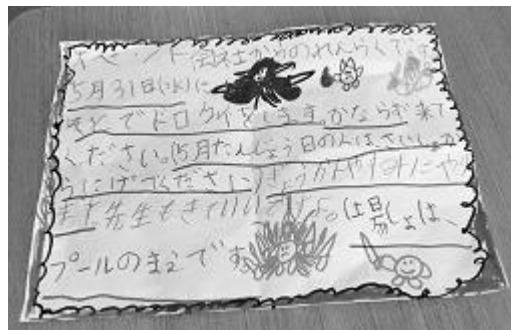 イベント会社からのれんらくです
5月31日(水)に
そとでドロケイをします。かならず来て
ください。(5月たんじょう日の人は、さいしょ
うにげてください)ぎょうかんやすみにやり
ます。先生もきていいですよ。ば場しょは、
プールのまえです。